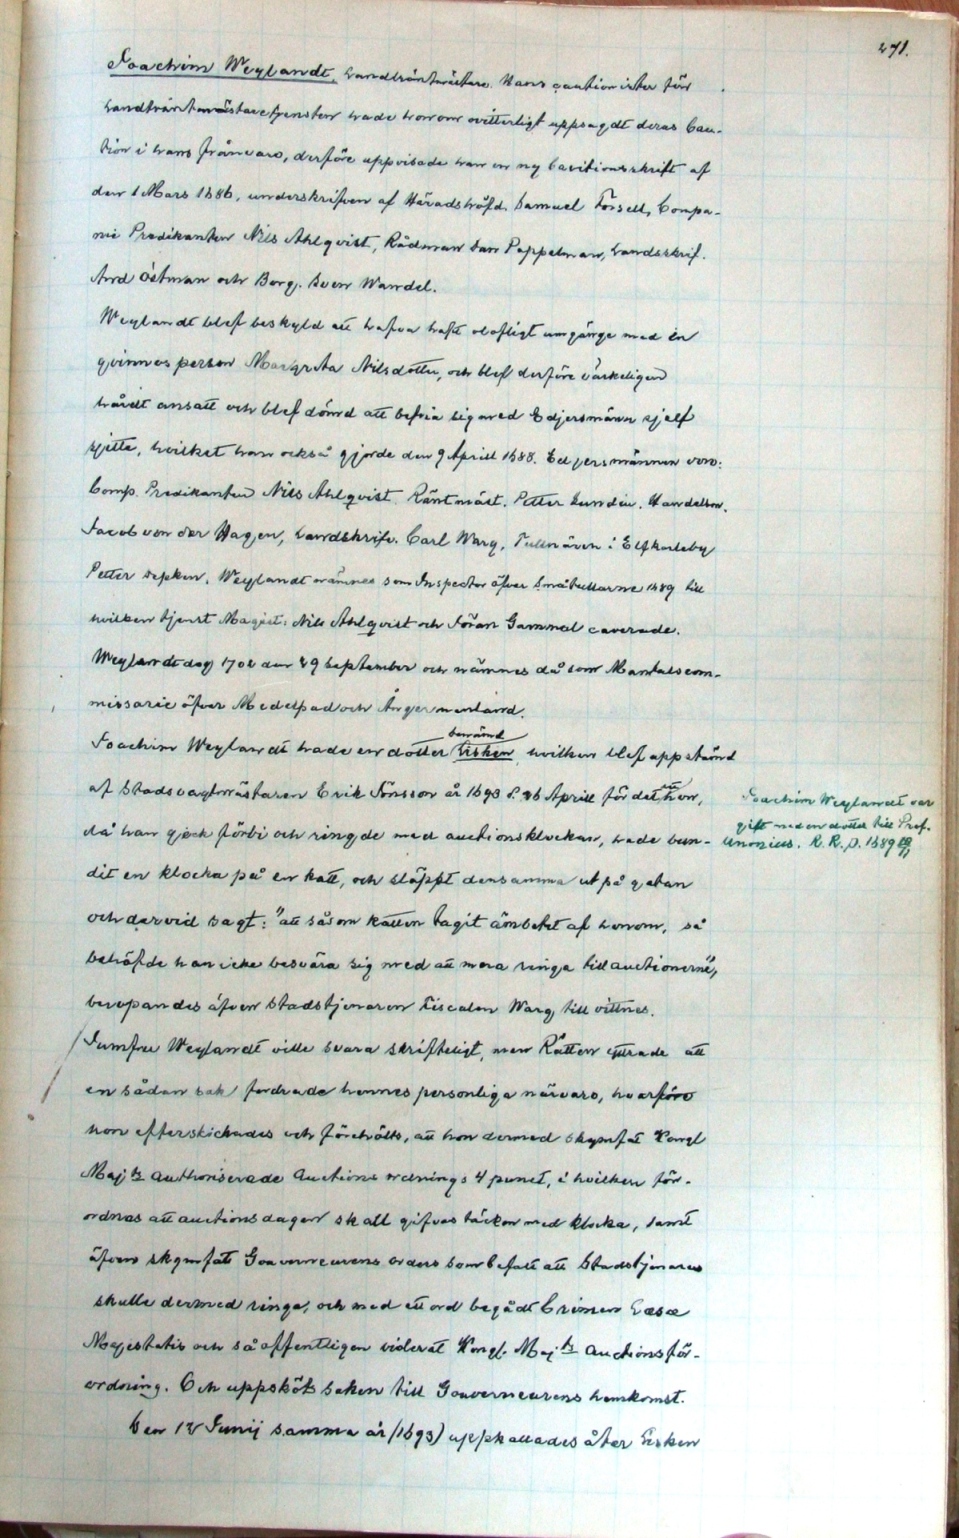 271.
Joachim Weylandt, Landträntmästare. Hans cautionister för
Landträntmästaretjensten hade honom ovitterligt uppsagdt deras Cau-
tion i hans frånvaro, derföre uppvisade han en ny Cautionsskrift af
den 1 Mars 1686, underskrifven af Häradshöfd. Samuel Forsell, Compa-
nie Predikanten Nils Ahlqvist, Rådman Jan Poppelman, Landsskrif.
And Östman och Borg. Sven Wandel.
Weylandt blef beskyld att hafva haft olofligt umgänge med en
qvinnes person Margreta Nilsdotter, och blef derföre värkeligen
hårdt ansatt och blef dömd att befria sig med Edjersmänn sjelf
sjette, hvilket han också gjorde den 9 Aprill 1688. Edjersmännen voro:
Comp. Predikanten Nils Ahlqvist, Räntmäst. Petter Lundin, Handelsm.
Jacob von der Hagen, Landskrifv. Carl Warg, Tullnären i Elfkarleby
Petter Depken. Weylandt nämnes som Inspector öfver Småtullarne 1689 till
hvilken tjenst Magist: Nils Ahlqvist och Jöran Gammal caverade.
Weylandt dog 1702 den 29 September och nämnes då som Mantalscom-
missarie öfver Medelpad och Ångermanland.
benämd
Joachim Weylandt hade en dotter Lisken hvilken blef uppstämd
af Stadsvagtmästaren Erik Jönsson år 1693 d. 26 Aprill för det att hon,
då han gjeck förbi och ringde med auctionsklockan, hade bun-
dit en klocka på en katt, och släppt densamma ut på gatan
och dervid sagt: "att såsom katten tagit ämbetet af honom, så
behöfde han icke besvära sig med att mera ringa till auctionerne",
beropandes äfven Stadstjenaren Fiscalen Warg till vittnes.
Jumfru Weylandt ville svara skrifteligt, men Rätten yttrade att
en sådan sak fordrade hennes personliga närvaro, hvarföre
hon efterskickades och förehölts, att hon dermed skymfat Kongl
Maj:ts authoriserade Auctions ordnings 4 punct, i hvilken för-
ordnas att auctionsdagen skall gifvas täcken med klocka, samt
äfven skymfat Gouverneurens orders som befalt att Stadstjenaren
skulle dermed ringa, och med ett ord begådt Crimen Læsæ
Majestatis och så offentligen violerat Kongl. Maj:ts Auctionsför-
ordning. Och uppsköts saken till Gouverneurens hemkomst.
Den 12 Junij samma år (1693) uppkallades åter Lisken
Joachim Weylandt var
gift med en dotter till Prof.
Unonius. R. R. p. 1689